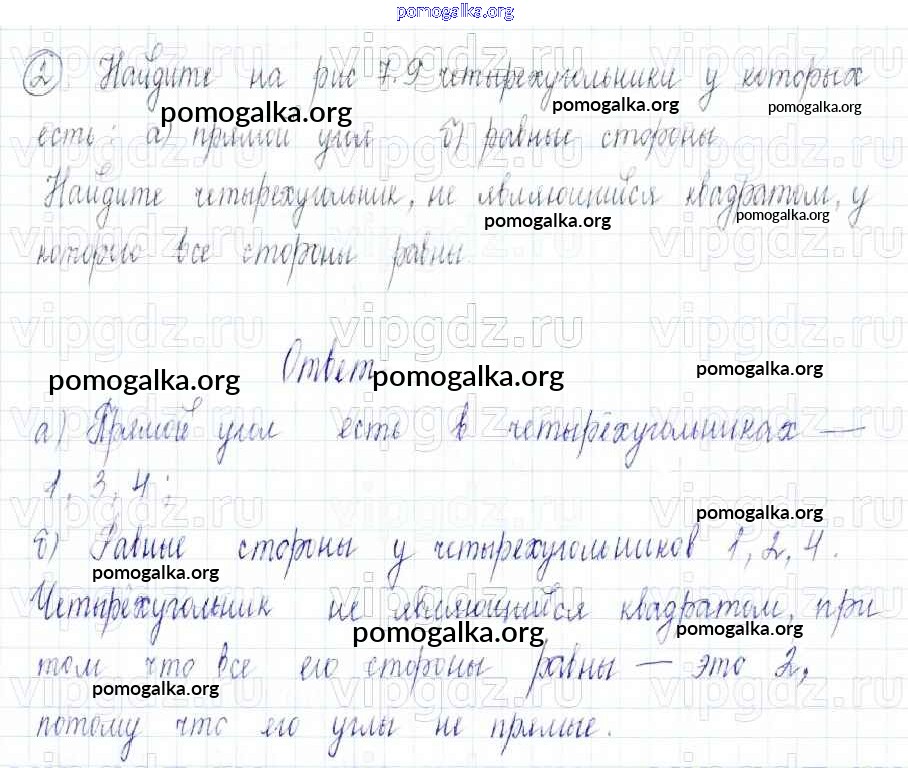 pomogalka.org
2 Найдите на рис 7.9 четырехугольники у которых
pomogalka.org pomogalka.org pomogalka.org
есть: а) прямой угол б) равные стороны
Найдите четырехугольник, не являющийся квадратом, у
pomogalka.org pomogalka.org
которого все стороны равны.
vipgdz.ru vipgdz.ru vipgdz.ru
Ответ
pomogalka.org pomogalka.org pomogalka.org
а) Прямой угол есть в четырёхугольниках —
1, 3, 4;
pomogalka.org
б) Равные стороны у четырехугольников 1, 2, 4.
pomogalka.org
Четырёхугольник не являющийся квадратом, при
pomogalka.org pomogalka.org
том что все его стороны равны — это 2,
pomogalka.org
потому что его углы не прямые.